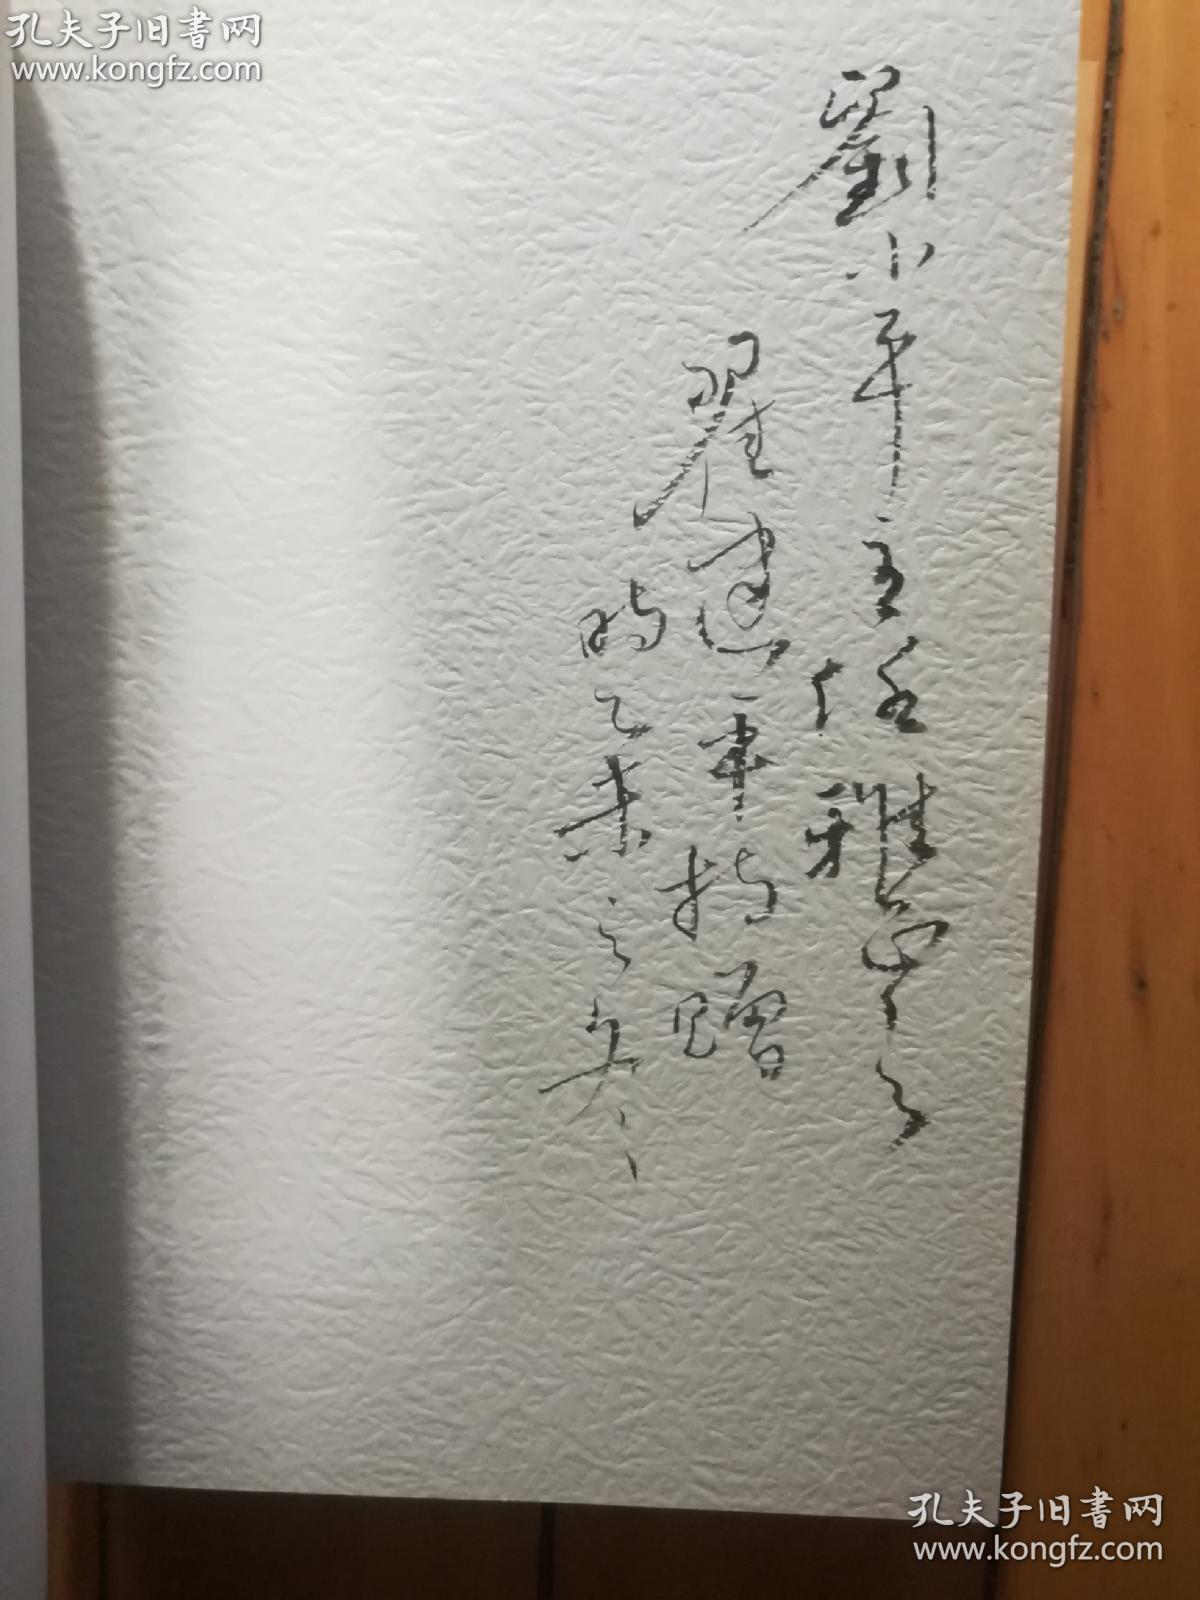 孔夫子旧書网
www.kongfz.com
劉小平主任雅正之
翟建军持赠
时乙未之冬
孔夫子旧書网
www.kongfz.com